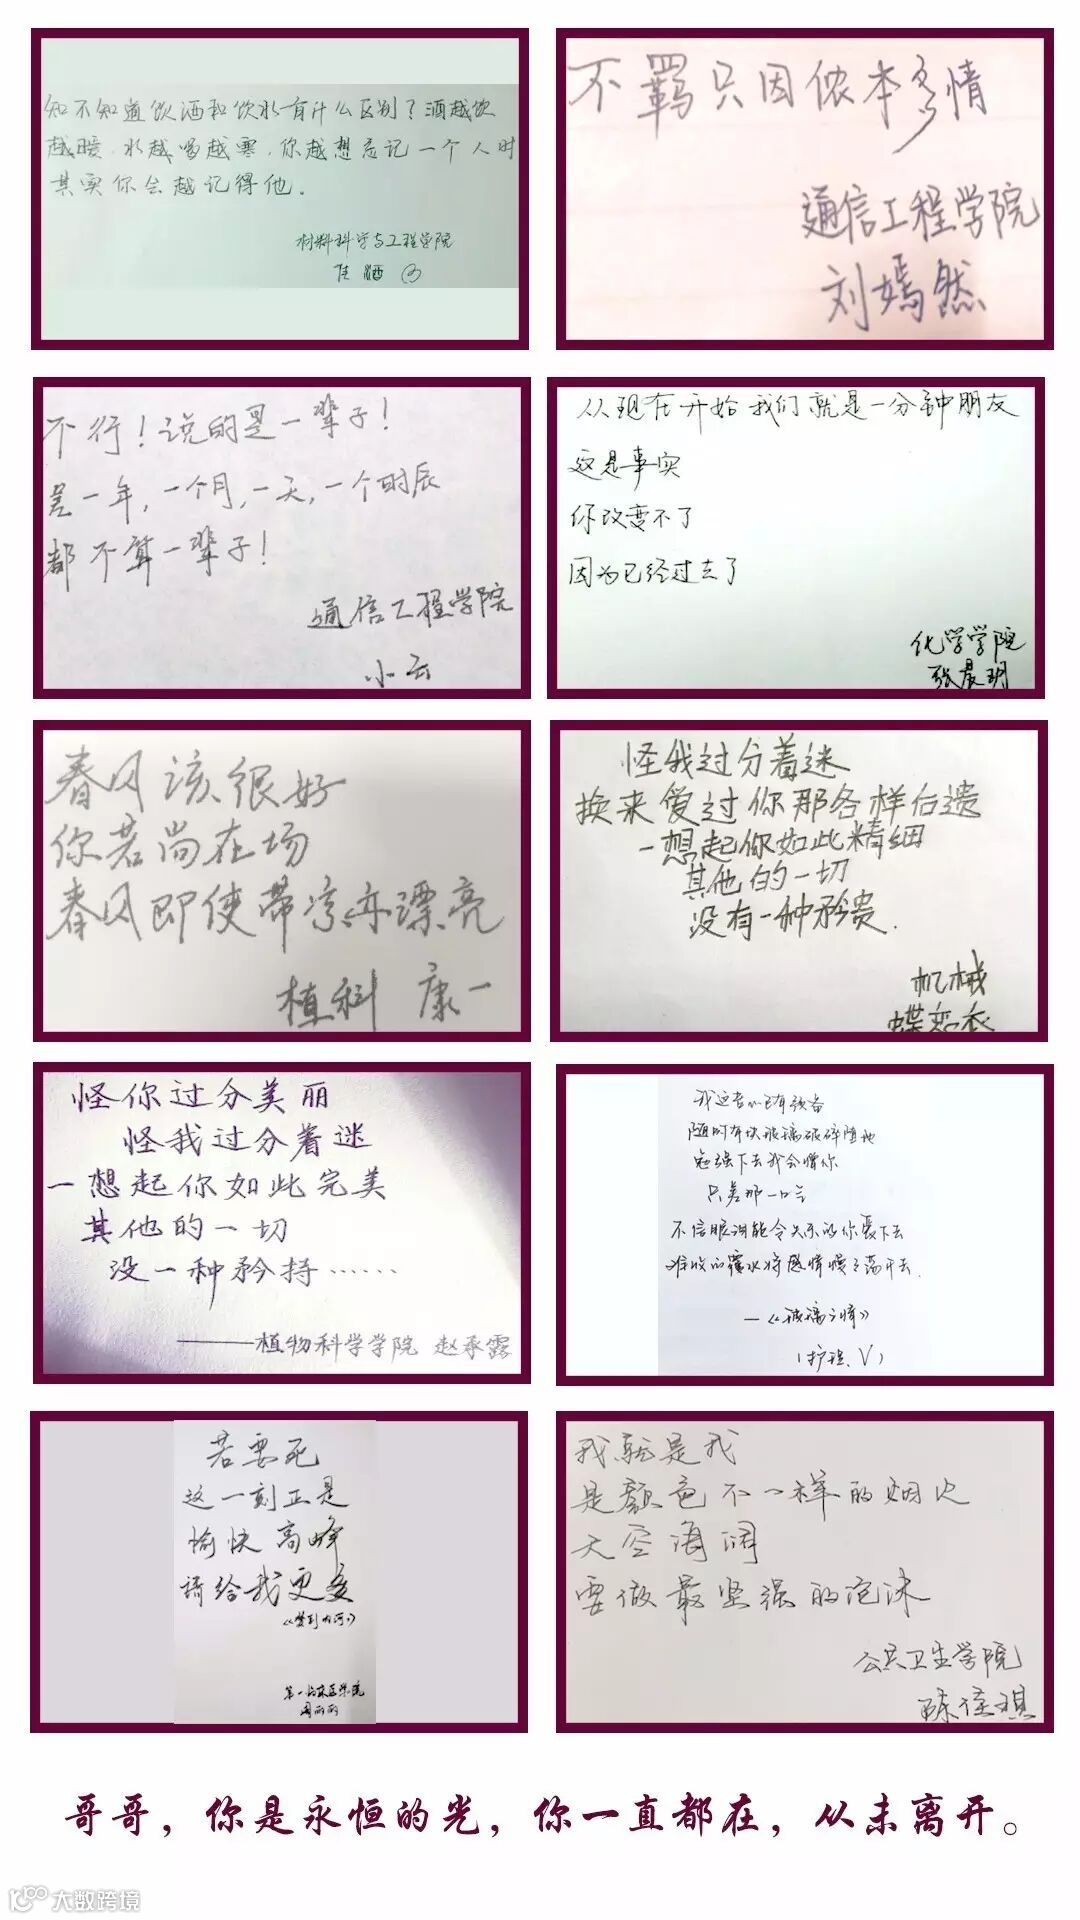 知不知道饮酒和饮水有什么区别？酒越饮
越暖，水越喝越寒，你越想忘记一个人时
其实你会越记得他。
材料科学与工程学院
不羁只因侬本多情
通信工程学院
刘嫣然
不行！说的是一辈子！
差一年，一个月，一天，一个时辰
都不算一辈子！
通信工程学院
小云
从现在开始我们就是一分钟朋友
这是事实
你改变不了
因为已经过去了
化学学院
张晨玥
春风该很好
你若尚在场
春风即使带凉亦漂亮
植科 康一
怪我过分着迷
换来爱过你那各样后遗
一想起你如此精细
其他的一切
没有一种矜贵.
机械
蝶恋衣
怪你过分美丽
怪我过分着迷
一想起你如此完美
其他的一切
没一种矜持……
——植物科学学院 赵承露
我这苦心已有预备
随时有块玻璃破碎堕地
勉强下去我会憎你
只差那一口气
不信眼泪能令失乐的你爱下去
难收的覆水将感情慢慢荡开去.
—《玻璃之情》
(护理、V)
若要死
这一刻正是
愉快高峰
请给我更多
第一临床医学院
周丽丽
我就是我
是颜色不一样的烟火
天空海阔
要做最坚强的泡沫
公共卫生学院
陈佳琪
哥哥，你是永恒的光，你一直都在，从未离开。
大数跨境